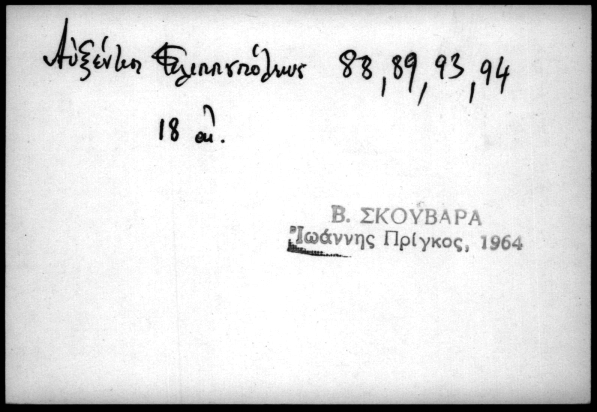 Αὐξέντιος Φιλιππουπόλεως 88, 89, 93, 94
18 αἰ.
Β. ΣΚΟΥΒΑΡΑ
Ἰωάννης Πρίγκος, 1964